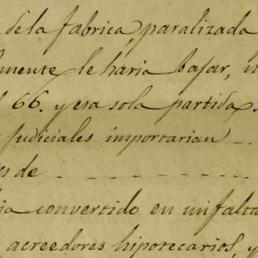 de la fabrica paralizada
mente le haria bajar,
66. y esa sola partida
judiciales importarian
de
convertido en un falta
acreedores hipotecarios, y